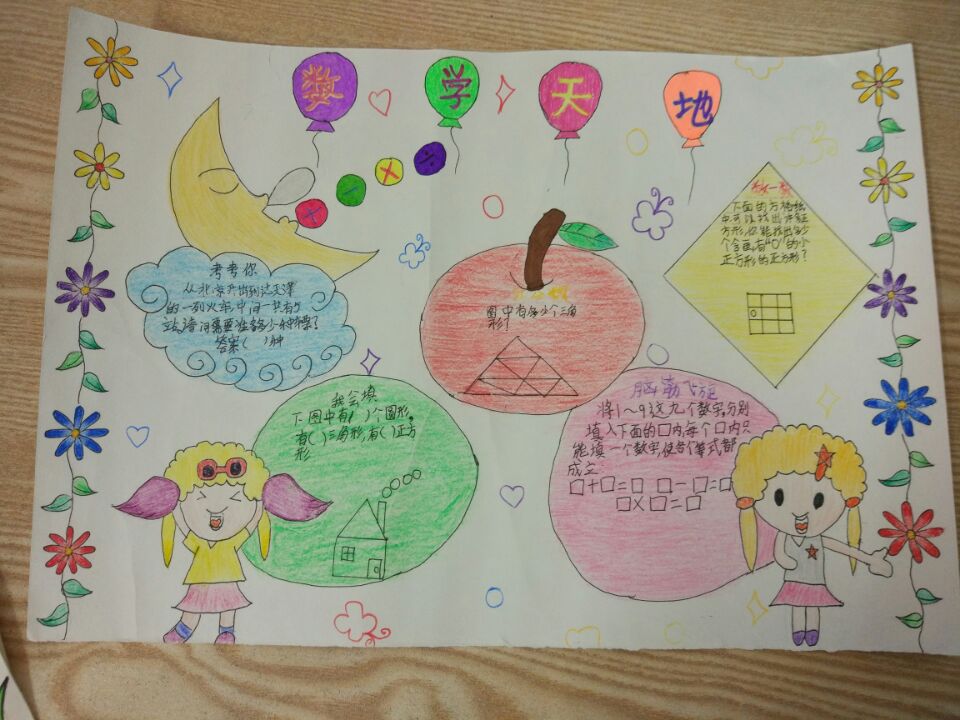 数学天地
考考你
从北京开出到达天津
的一列火车,中间一共有5
站,请问需要准备多少种票?
答案( )种
图中有多少个三角
形?
数一数
下面的方格纸
中可以找出许多正
方形,你能找出多少
个含有“O”的小
正方形的正方形?
我会填
下图中有( )个圆形,
有( )三角形,有( )正方
形
脑筋飞旋
将1~9这九个数字,分别
填入下面的□内,每个□内只
能填一个数字,使各个算式都
成立.
□+□=□ □-□=□
□×□=□